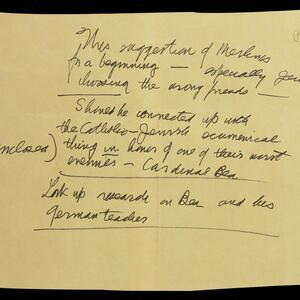 This suggestion of Merlines
for a beginning — especially Jew
choosing the wrong friends —
Should be connected up with
the Catholic-Jewish ecumenical
nclosed) thing in honor of one of their worst
enemies — Cardinal Bea
Look up research on Bea and his
German teacher